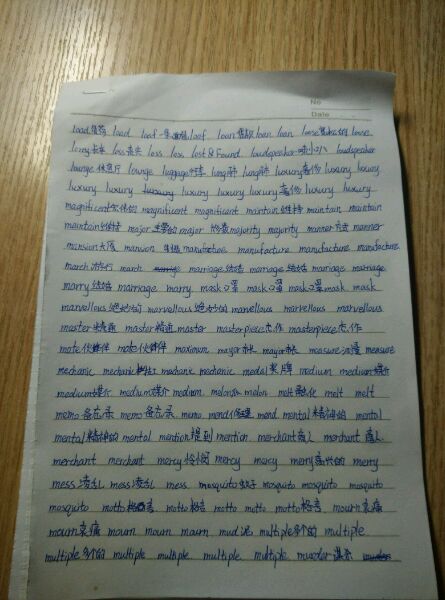 No
Date
load load loaf loaf loan loan loan loose loose
lorry loss丢失 loss loss lost & Found loudspeaker loudspeaker
lounge lounge luggage行李 lung肺 lung肺 luxury奢侈 luxury luxury
luxury luxury luxury luxury luxury奢侈 luxury luxury
magnificent magnificent magnificent maintain维持 maintain maintain
maintain维持 major主要的 major majority majority manner方式 manner
mansion大厦 mansion manufacture manufacture manufacture manufacture
march march marriage结婚 marriage结婚 marriage marriage
marry结婚 marriage marry mask口罩 mask口罩 mask口罩 mask mask
marvellous绝妙的 marvellous绝妙的 marvellous marvellous marvellous
master master精通 master masterpiece杰作 masterpiece杰作
mate伙伴 mate伙伴 maximum mayor市长 mayor市长 measure measure
mechanic mechanic mechanic mechanic medal奖牌 medium medium媒介
medium媒介 medium媒介 medium melon melon melt融化 melt melt
memo备忘录 memo备忘录 memo mend修理 mend mental精神的 mental
mental精神的 mental mention提到 mention merchant商人 merchant商人
merchant merchant mercy怜悯 mercy mercy merry高兴的 merry
mess凌乱 mess凌乱 mess mosquito蚊子 mosquito mosquito
mosquito motto motto格言 motto motto motto格言 mourn哀痛
mourn哀痛 mourn mourn mourn mud泥 multiple多个的 multiple
multiple多个的 multiple multiple multiple multiple murder谋杀